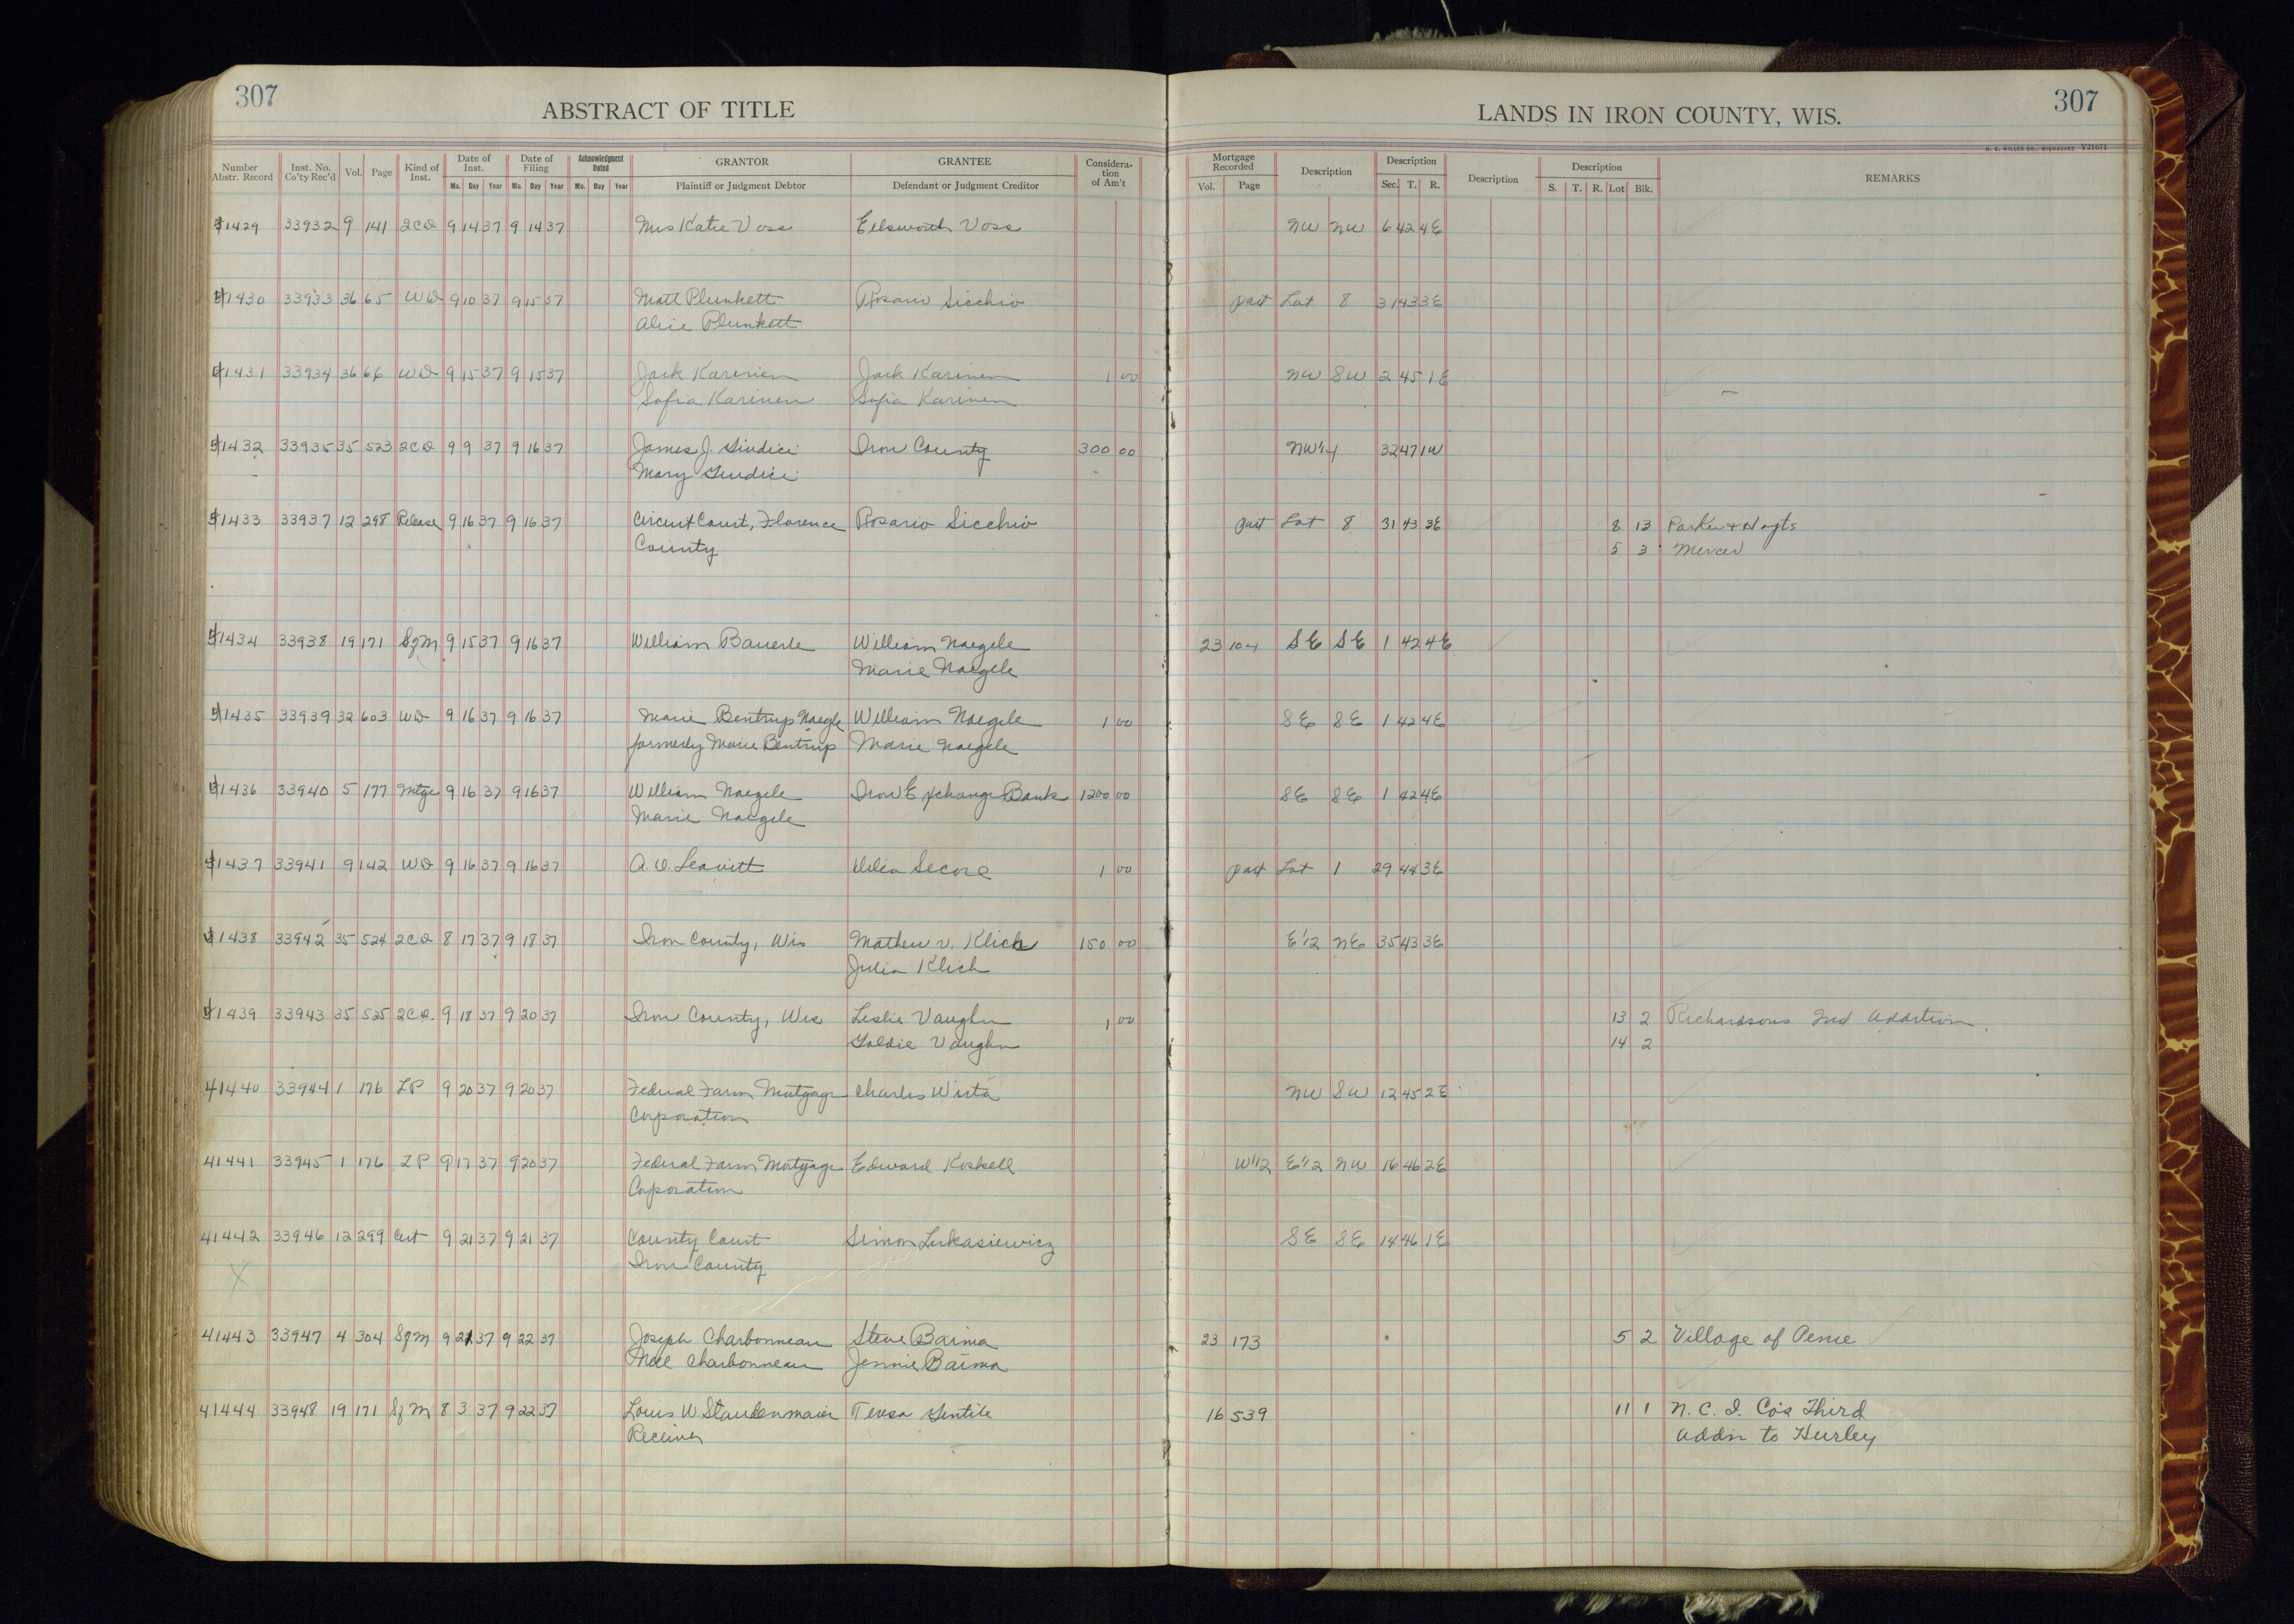 307
ABSTRACT OF TITLE
LANDS IN IRON COUNTY, WIS.
307
H. C. MILLER CO., MILWAUKEE V21671
Number Abstr. Record Inst. No. Co'ty Rec'd Vol. Page Kind of Inst. Date of Inst. Mo. Day Year Date of Filing Mo. Day Year Acknowledgment Dated Mo. Day Year GRANTOR Plaintiff or Judgment Debtor GRANTEE Defendant or Judgment Creditor Considera-tion of Am't Mortgage Recorded Vol. Page Description Description Sec. T. R. Description Description S. T. R. Lot Blk. REMARKS
41429 33932 9 141 2CD 9 14 37 9 14 37 Mrs Katie Voss Ellsworth Voss NW NW 6 42 4E
41430 33933 36 65 WD 9 10 37 9 15 37 Matt Plunkett Rosario Sicchio part Lot 8 31 43 3E
Alice Plunkett
41431 33934 36 66 WD 9 15 37 9 15 37 Jack Karinen Jack Karinen 1 00 NW SW 2 45 1E
Sofia Karinen Sofia Karinen
41432 33935 35 523 2CD 9 9 37 9 16 37 James J. Giudici Iron County 300 00 NW1/4 32 47 1W
Mary Giudici
41433 33937 12 298 Release 9 16 37 9 16 37 Circuit Court, Florence Rosario Sicchio part Lot 8 31 43 3E 8 13 Parker & Hoyts
County 5 3 Mercer
41434 33938 19 171 SgM 9 15 37 9 16 37 William Bauerle William Naegele 23 104 SE SE 1 42 4E
Marie Naegele
41435 33939 32 603 WD 9 16 37 9 16 37 Marie Bentrup Naegle William Naegele 1 00 SE SE 1 42 4E
formerly Marie Bentrup Marie Naegele
41436 33940 5 177 Mtge 9 16 37 9 16 37 William Naegele Iron Exchange Bank 1200 00 SE SE 1 42 4E
Marie Naegele
41437 33941 9 142 WD 9 16 37 9 16 37 A. O. Leavitt Delia Secore 1 00 part Lot 1 29 44 3E
41438 33942 35 524 2CD 8 17 37 9 18 37 Iron County, Wis Mathew V. Klich 150 00 E1/2 NE 35 43 3E
Julia Klich
41439 33943 35 525 2CD. 9 18 37 9 20 37 Iron County, Wis Leslie Vaughn 1 00 13 2 Richardsons 2nd Addition
Goldie Vaughn 14 2
41440 33944 1 176 LP 9 20 37 9 20 37 Federal Farm Mortgage Charles Wirta NW SW 12 45 2E
Corporation
41441 33945 1 176 LP 9 17 37 9 20 37 Federal Farm Mortgage Edward Koskell W1/2 E1/2 NW 16 46 2E
Corporation
41442 33946 12 299 Cert 9 21 37 9 21 37 County Court Simon Lukasiewicz SE SE 14 46 1E
X Iron County
41443 33947 4 304 SgM 9 21 37 9 22 37 Joseph Charbonneau Steve Barma 23 173 5 2 Village of Pence
Mae Charbonneau Jennie Barma
41444 33948 19 171 SgM 8 3 37 9 22 37 Louis W Staudenmaier Teresa Gentile 16 539 11 1 N. C. I. Co's Third
Receiver Addn to Hurley